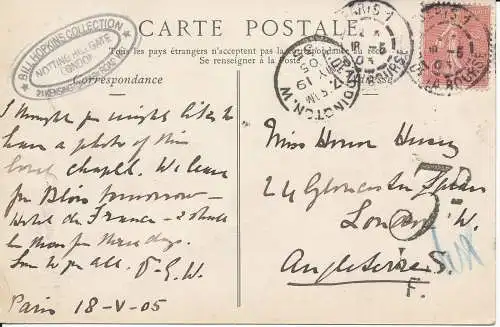 CARTE POSTALE
Tous les pays étrangers n'acceptent pas la correspondance au
Se renseigner à la Poste
Correspondance
BILL HOPKINS COLLECTION
NOTTING HILL GATE
LONDON
PADDINGTON. W.
MY 19
05
PARIS
BOURSE
I thought you might like to
have a photo of this
lovely chapel. We leave
for Blois tomorrow –
Hotel de France – & shall
be there for three days.
Love to you all. E.W.
Paris 18-V-05
Miss Honor
24 Gloucester Square
London W.
Angleterre
3D
F.